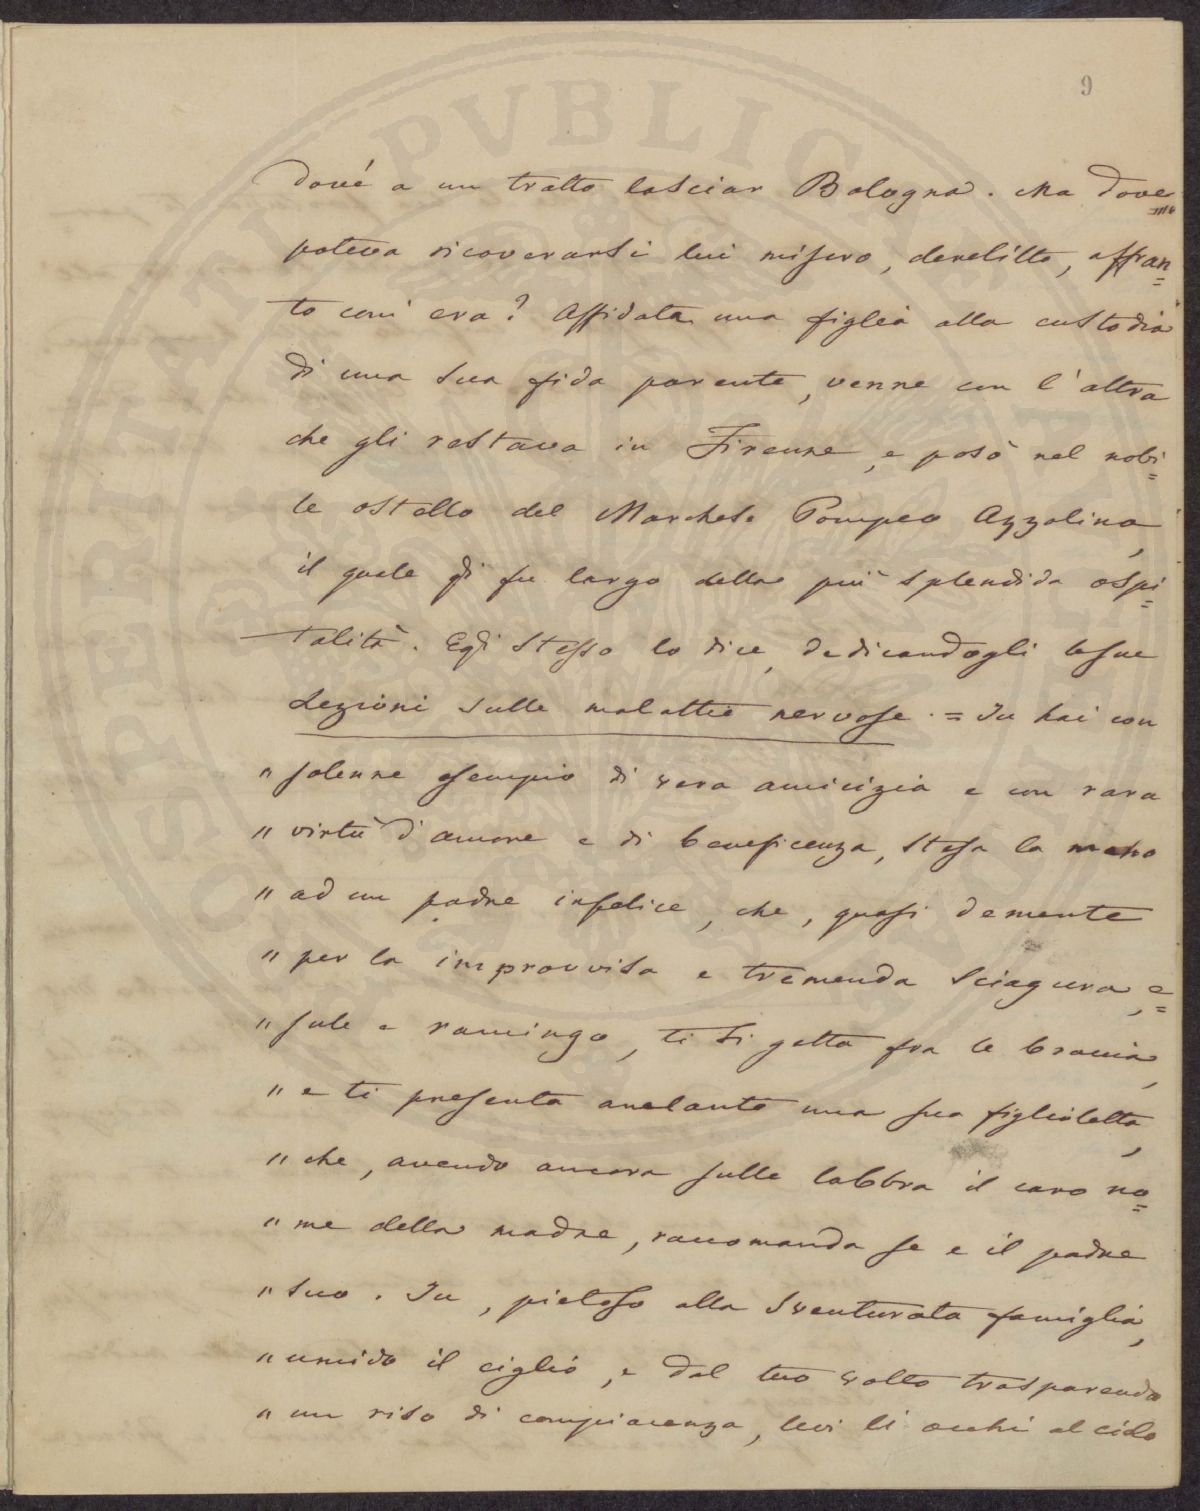 9
dové a un tratto lasciar Bologna. Ma dove
poteva ricoverarsi lui misero, derelitto, affran=
to com' era? Affidata una figlia alla custodia
di una sua fida parente, venne con l'altra
che gli restava in Firenze, e posò nel nobi=
le ostello del Marchese Pompeo Azzolino,
il quale gli fu largo della più splendida ospi=
talità. Egli stesso lo dice, dedicandogli le sue
Lezioni sulle malattie nervose. = Tu hai con
" solenne esempio di vera amicizia e con rara
" virtù d'amore e di beneficenza, stesa la mano
" ad un padre infelice, che, quasi demente
" per la improvvisa e tremenda sciagura, e=
" sule e ramingo, ti si getta fra le braccia,
" e ti presenta anelante una sua figlioletta,
" che, avendo ancora sulle labbra il caro no=
" me della madre, raccomanda se e il padre
" suo. Tu, pietoso alla sventurata famiglia,
" umido il ciglio, e dal tuo volto trasparendo
" un riso di compiacenza, levi li occhi al cielo
SOSPERITATI PVBLICAE AVGENDAE